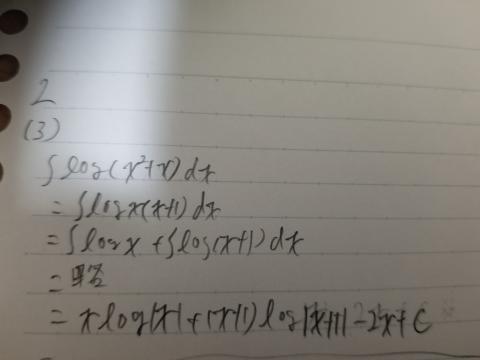 2
(3)
∫log(x²+x)dx
=∫log x(x+1)dx
=∫log x+∫log(x+1)dx
=略
=xlog|x|+(x+1)log|x+1|-2x+C